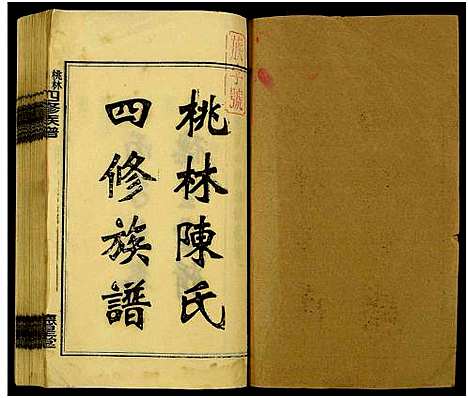 桃林陳氏
四修族譜
桃林
四修族譜